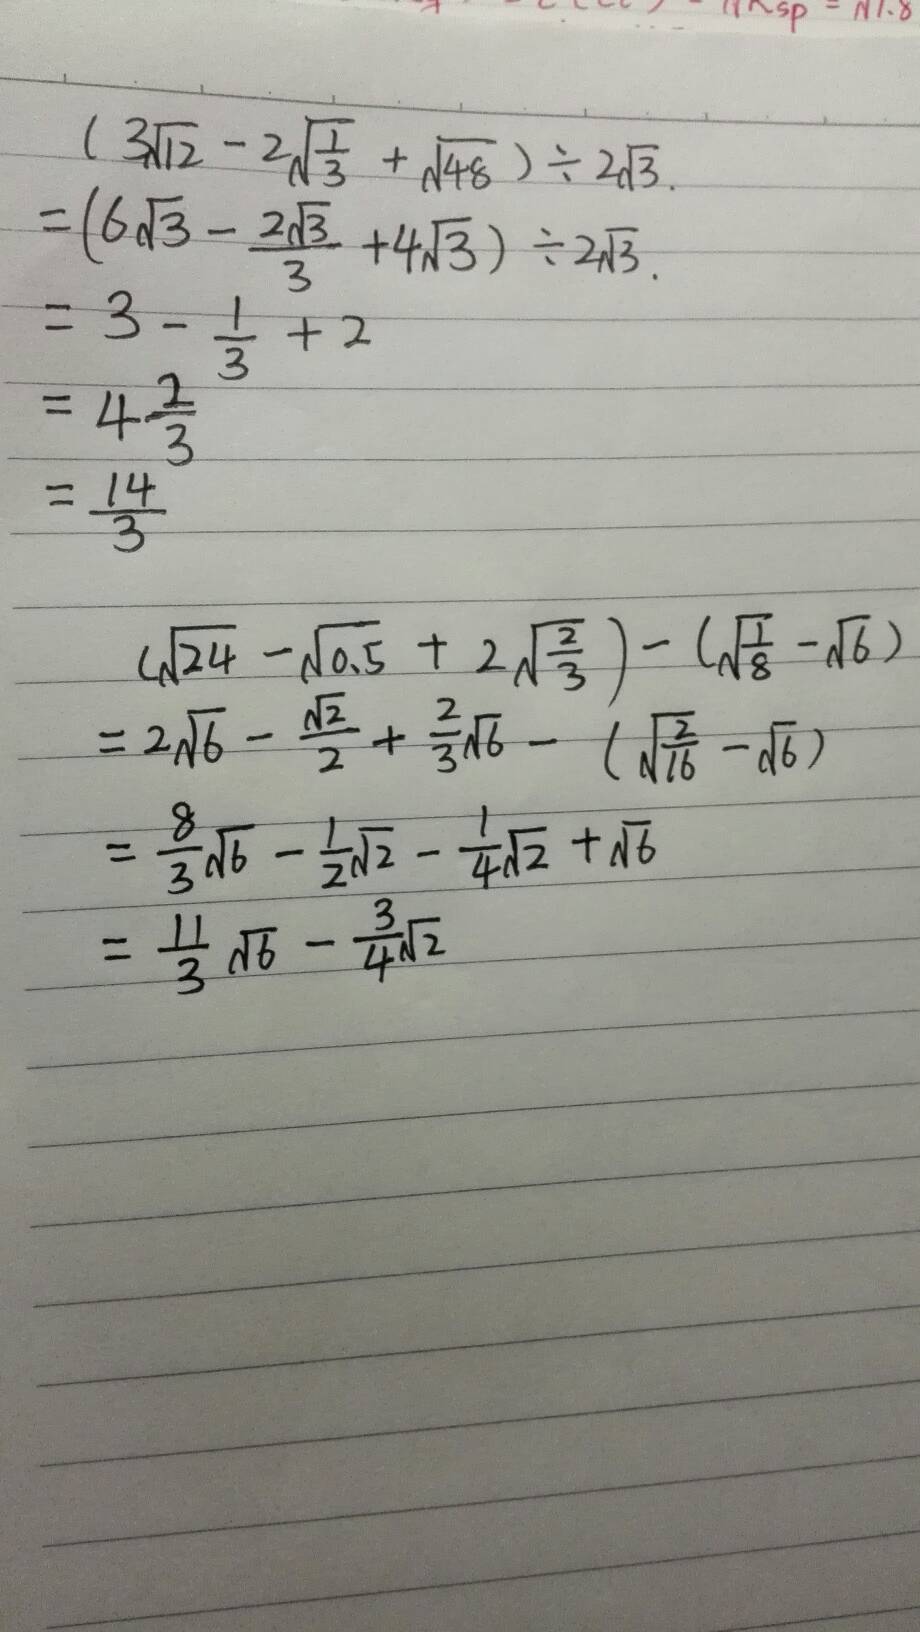 Ksp = √1.8
(3√12 - 2√(1/3) + √48) ÷ 2√3.
= (6√3 - 2√3/3 + 4√3) ÷ 2√3.
= 3 - 1/3 + 2
= 4 2/3
= 14/3
(√24 - √0.5 + 2√(2/3)) - (√(1/8) - √6)
= 2√6 - √2/2 + 2/3√6 - (√(2/16) - √6)
= 8/3√6 - 1/2√2 - 1/4√2 + √6
= 11/3√6 - 3/4√2